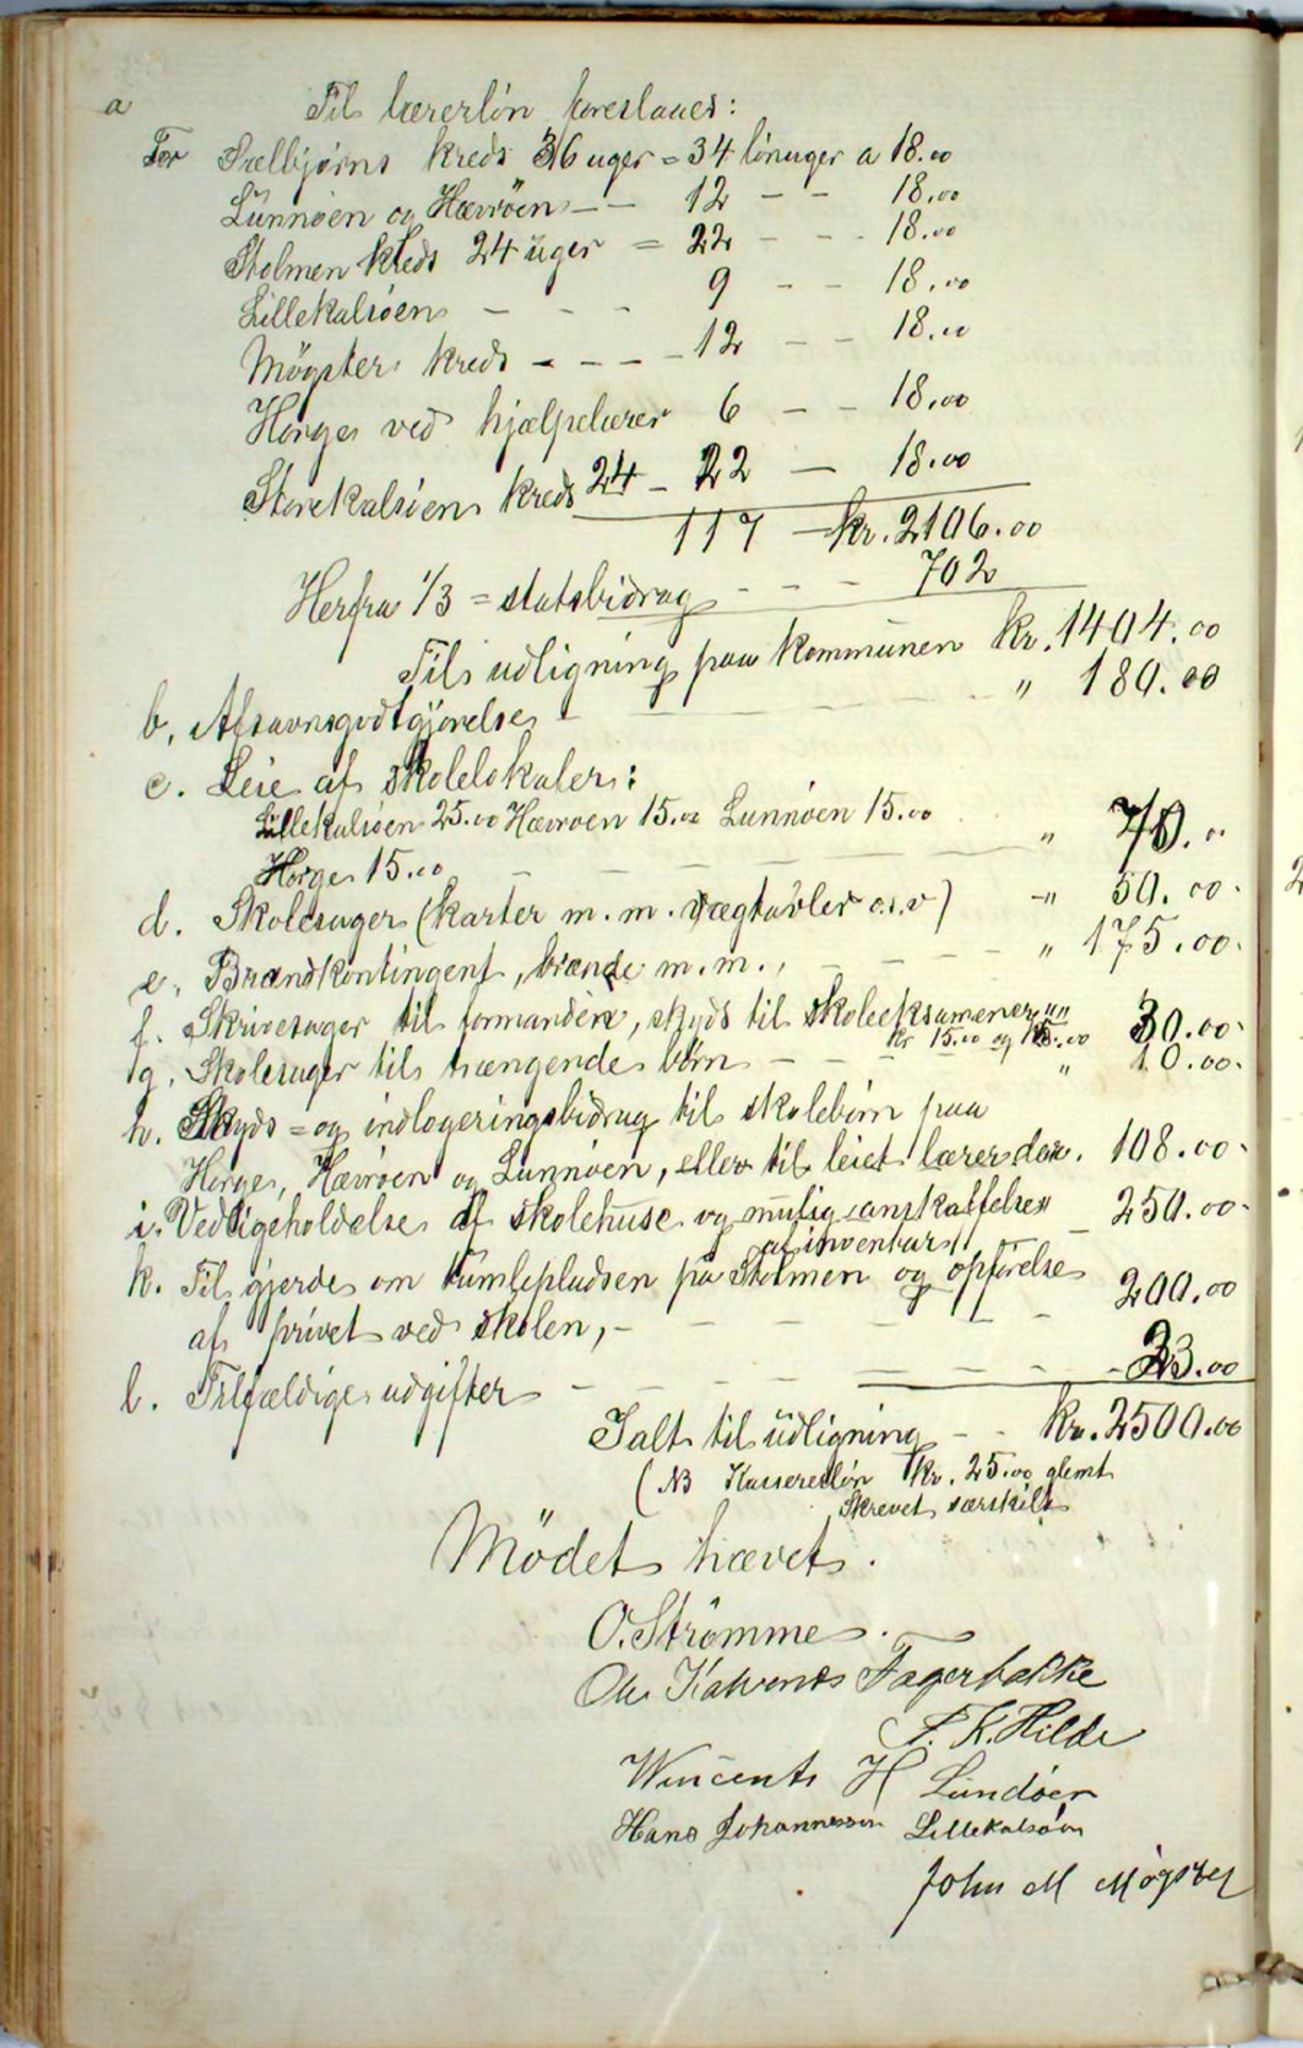 a Til lærerløn foreslaaes:
For Sælbjørns kreds 36 uger = 34 lønuger a 18.00
Lunnøen og Hævrøen - - 12 - - 18.00
Stolmen kreds 24 uger = 22 - - 18.00
Lillekalsøen - - - 9 - - 18.00
Møgster kreds - - - - 12 - - 18.00
Horge ved hjælpelærer 6 - - 18.00
Storekalsøens kreds 24 - 22 - 18.00
117 - kr. 2106.00
Herfra 1/3 = statsbidrag - - - 702
Til udligning paa kommunen kr. 1404.00
b. Afsavnsgodtgjørelse - - - - " 180.00
c. Leie af skolelokaler:
Lillekalsøen 25.00 Hævrøen 15.00 Lunnøen 15.00
Horge 15.00 - - - - " 70.00
d. Skolesager (karter m.m. vægtavler o.s.v) - " 50.00
e. Brandkontingent, brænde m.m., - - - - " 175.00
f. Skrivesager til formanden, skyds til skoleeksamener, """ 30.00
kr 15.00 og 15.00
g. Skolesager til trængende børn - - - - " 10.00
h. Skyds= og indlogeringsbidrag til skolebørn paa
Horge, Hævrøen og Lunnøen, eller til leiet lærer der. 108.00
i. Vedligeholdelse af skolehuse og mulig anskaffelse " 250.00
af inventar
k. Til gjerde om tumlepladsen på Stolmen og opførelse
af privet ved skolen, - - - - - - 200.00
l. Tilfældige udgifter - - - - - - - - 23.00
Ialt til udligning - - kr. 2500.00
(NB Kassererløn kr. 25.00 glemt
Skrevet særskilt
Mødet hævet.
O. Strømme.
Ole Kalvenes Fagerbakke
P. K. Hilde
Wincents H Lundøen
Hans Johannessen Lillekalsøen
John M Møgster